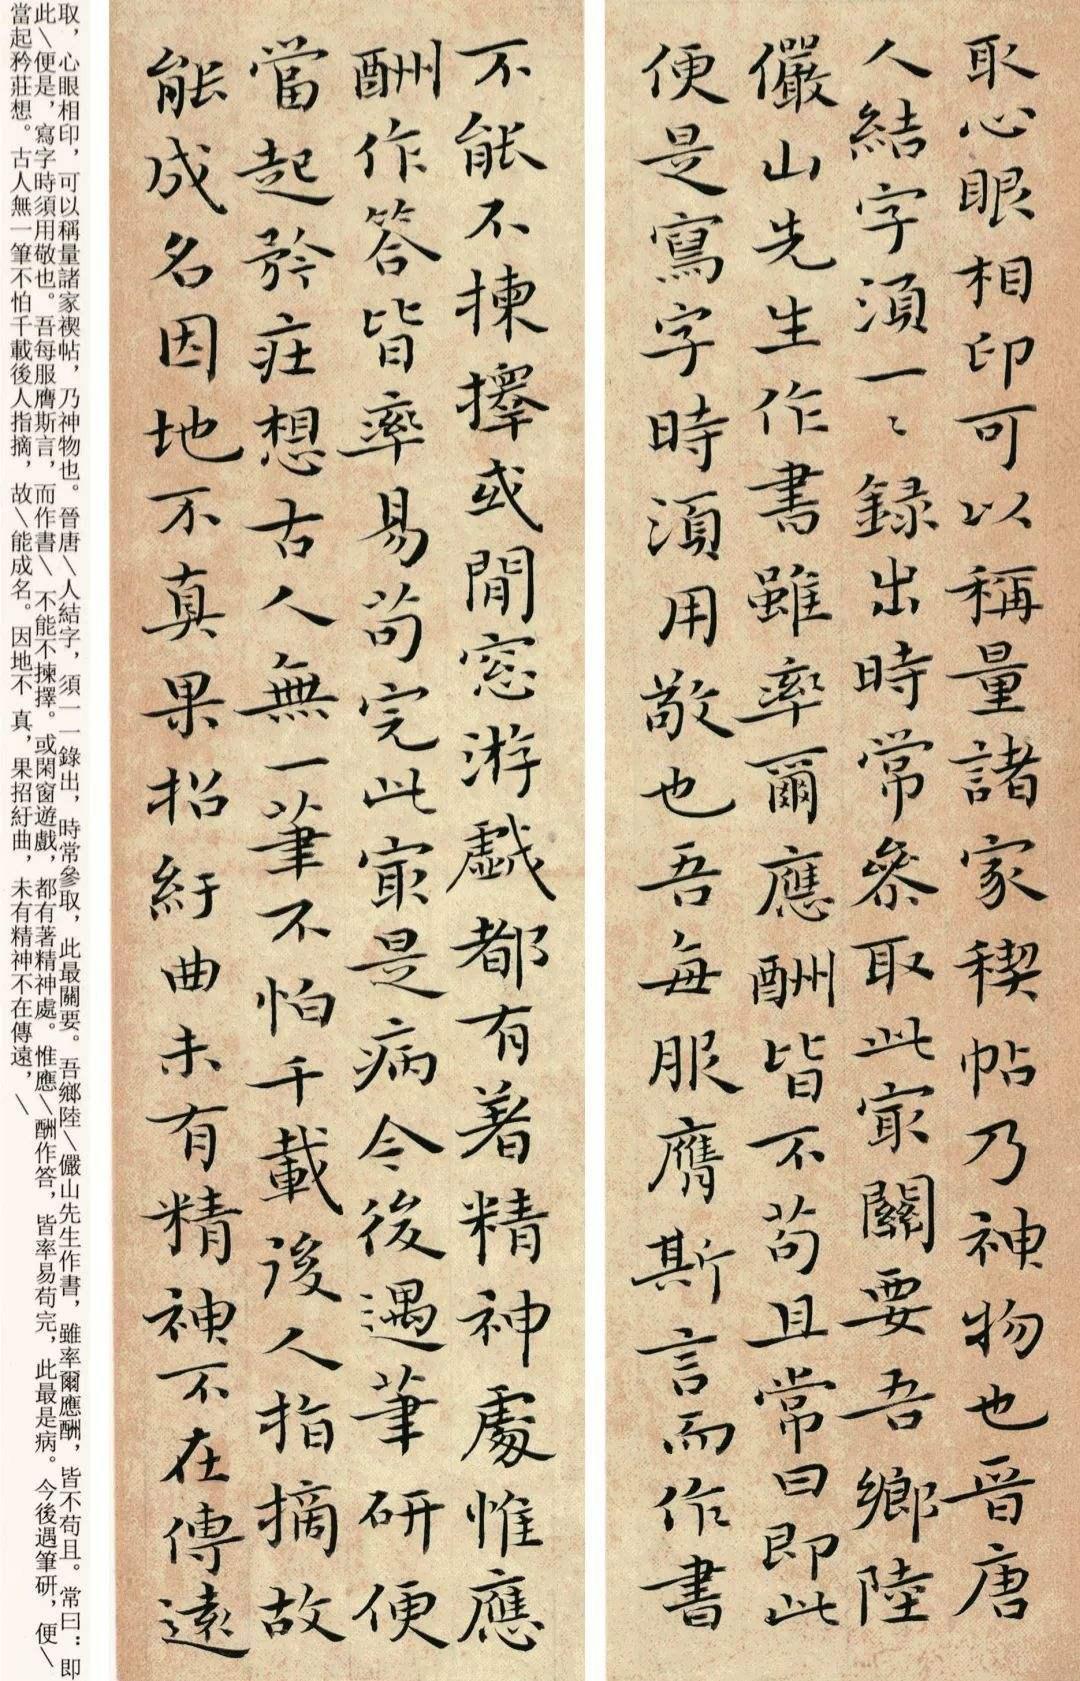 取心眼相印可以稱量諸家稧帖乃神物也晉唐
人結字須一〻錄出時常參取此㝡關要吾鄉陸
儼山先生作書雖率爾應酬皆不苟且常曰即此
便是寫字時須用敬也吾每服膺斯言而作書
不能不揀擇或閒窓游戱都有著精神處惟應
酬作答皆率易苟完此㝡是病今後遇筆研便
當起矜莊想古人無一筆不怕千載後人指摘故
能成名因地不真果招紆曲未有精神不在傳遠
取，心眼相印，可以稱量諸家禊帖，乃神物也。晉唐\人結字，須一一錄出，時常參取，此最關要。吾鄉陸\儼山先生作書，雖率爾應酬，皆不苟且。常曰：即
此\便是，寫字時須用敬也。吾每服膺斯言，而作書\不能不揀擇。或閑窗遊戲，都有著精神處。惟應\酬作答，皆率易苟完，此最是病。今後遇筆研，便\
當起矜莊想。古人無一筆不怕千載後人指摘，故\能成名。因地不真，果招紆曲，未有精神不在傳遠，\